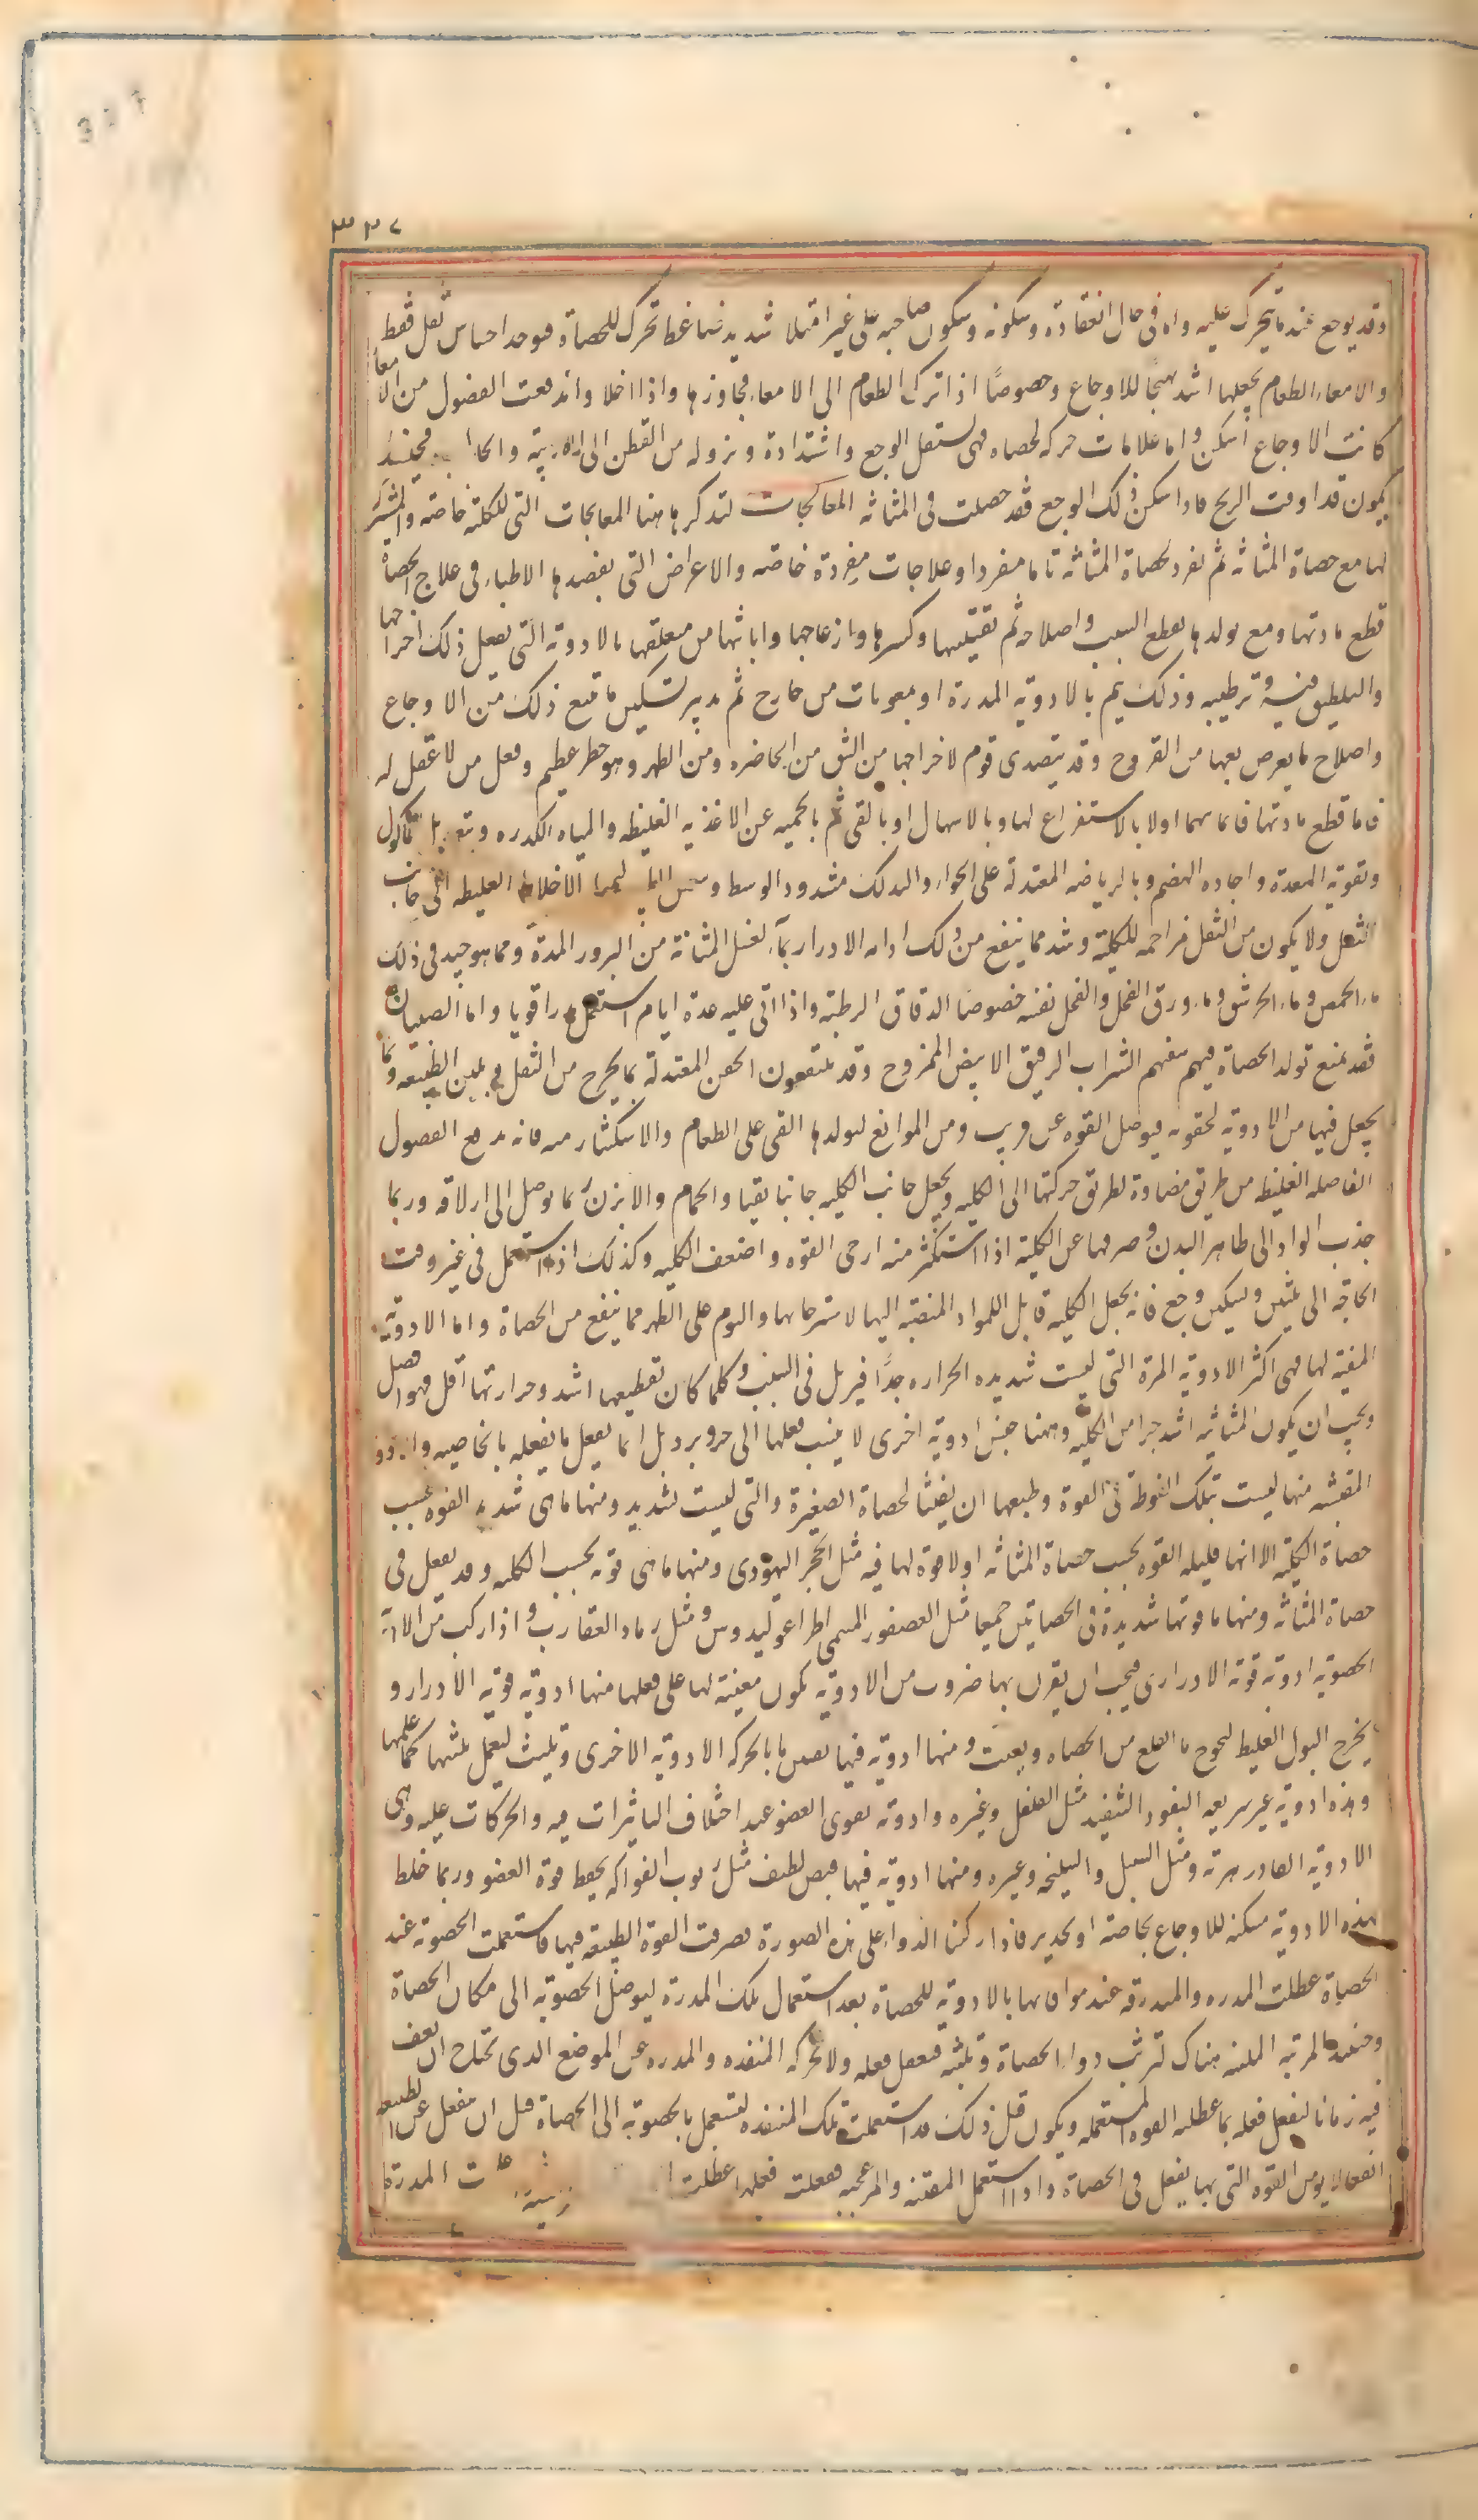 ٣٢٧
وقد يوجع عند ما يتحرك عليه واما فى حال انعقاده وسكونه وسكون صاحبه على غير امتلا شديد ضاغط تحرك للحصاة فيوجد احساس ثقل فقط
والامعاء الطعام يجعلها اشد تهيجا للاوجاع وخصوصًا اذا ترك الطعام الى الامعاء فجاوزها واذا اخلا واندفعت الفضول من الامعا
كانت الاوجاع اسكن واما علامات حركه الحصاه فهى تسفل الوجع واشتداده ونزوله من القطن الى الاربية والحا فحينئذ
يكون قد اوفت الربح فاذا سكن ذلك الوجع فقد حصلت فى المثانه المعالجات لنذكر هاهنا المعالجات التى للكلية خاصه والمشترك
لها مع حصاة المثانة ثم نفرد لحصاة المثانة بابا مفردا وعلاجات مفردة خاصه والاعراض التى يقصدها الاطباء فى علاج الحصاة
قطع مادتها ومنع تولدها بقطع السبب واصلاحه ثم تفتيتها وكسرها وازعاجها وابانتها من معلقها بالادوية التى يفعل ذلك اخراجها
والتلطيف فيه وترطيبه وذلك يتم بالادويه المدرة او بمعونات من خارج ثم تدبير تسكين ما يتبع ذلك من الاوجاع
واصلاح ما يعرض بعها من القروح وقد يتصدى قوم لاخراجها من الشق من الخاصره ومن الظهر وهو خطر عظيم وفعل من لا عقل له
فاما قطع مادتها فانما يهيا اولا بالاستفراغ لها وبالاسهال او بالقى ثم بالحميه عن الاغذيه الغليظه والمياه الكدره وتعديل المأكول
وتقوية المعدة واجاده الهضم وبالرياضه المعتدلة على الخواء والدلك مشدود الوسط و الاخلاط الغليظه الى جانب
الثفل ولا يكون من الثفل مزاحمه للكلية وشد مما ينفع من ذلك ادامه الادرار بما يغسل المثانة من البزور المدرة ومما هو جيد فى ذلك
ماء الحمص وماء الحرشف وماء ورق الفجل والفجل نفسه خصوصا الدقاق الرطبة واذا اتى عليه عدة ايام استعمل مدرا قويا واما الصبيان
فقد يمنع تولد الحصاة فيهم سقيهم الشراب الرقيق الابيض الممزوج وقد ينتفعون الحقن المعتدلة بما يخرج من الثفل وبلين الطبيعه وبما
يجعل فيها من الادوية لحقونه فيوصل القوه عن قريب ومن الموانع لتولدها القى على الطعام والاستكثار منه فانه يدفع الفضول
الفاضله الغليظه من طريق مضادة لطريق حركتها الى الكليه ويجعل جانب الكليه جانبا نقيا والحمام والابزن ربما توصل الى ازلاقه وربما
جذب المواد الى ظاهر البدن وصرفها عن الكلية اذا استكثر منه ارخى القوه واضعف الكليه وكذلك اذا استعمل فى غير وقت
الحاجة الى تليين وتسكين وجع فانه يجعل الكليه قابل للمواد المنصبة اليها لاسترخائها والنوم على الظهر مما ينفع من الحصاة واما الادوية
المفتتة لها فهى اكثر الادوية المرة التى ليست شديده الحراره جدًا فيزيد فى السبب وكلما كان تقطيعها اشد وحرارتها اقل فهو افضل
ويجب ان يكون المثانيه اشد حرا من الكليه وههنا جنس ادوية اخرى لا ينسب فعلها الى حر وبرد بل انما يفعل ما يفعله بالخاصيه
المفتته منها ليست بتلك القوة فى القوة وطبعها ان يفتت الحصاة الصغيرة والتى ليست بشديد ومنها ما هى شديد القوه بحسب
حصاة الكلية الا انها قليله القوه بحسب حصاة المثانه اولا قوة لها فيه مثل الحجر اليهودى ومنها ما هى قوية بحسب الكليه وقد يفعل فى
حصاة المثانه ومنها ما قوتها شديدة فى الحصاتين جميعا مثل العصفور المسمى اطراغوليدوس ومثل رماد العقارب واذا ركب من الادوية
الحصويه ادوية قوية الادرارى فيجب ان يقرن بها ضروب من الادويه تكون معينة لها على فعلها منها ادوية قوية الادرار و
يخرج البول الغليظ ليخرج ما انقلع من الحصاه وتفتت ومنها ادويه فيها بالحركه الادويه الاخرى وتلبث ليعمل بلبثها كمال عملها
وهذه ادوية غير سريعه النفوذ الشديد مثل الفلفل وغيره وادوية تقوى العضو عند اختلاف التاثيرات فيه والحركات عليه وهى
الادويه الفادزهرية ومثل السنبل والسليخه وغيره ومنها ادوية فيها قبض لطيف مثل ربوب الفواكه يحفظ قوة العضو وربما خلط
بهذه الادوية مسكنه للاوجاع بخاصة او تخدير فاذا ركبنا الدواء على هذه الصورة تصرفت القوة الطبيعيه فيها فاستعملت الحصوية عند
الحصاة عطلت المدره والمبدرقه عند موافاتها بالادويه للحصاة بعد استعمال تلك المدرة ليوصل الحصويه الى مكان الحصاة
وحبسه المرتبه الملبثه هناك لتريث دواء الحصاة وتلبثه فيفعل فعله ولا تحركه المنفذه والمدره عن الموضع الذى يحتاج ان يقف
فيه زمانا ليفعل فعله بما عطله القوه المستعمله ويكون قبل ذلك قد استعملت تلك المنفذه لتستعمل بالحصوية الى الحصاة قبل ان ينفعل عن الطبيعه
انفعالا يوهن القوه التى بها يفعل فى الحصاة واذا استعمل المفتته والمزعجه ففعلت فعلها عطلت المدرة